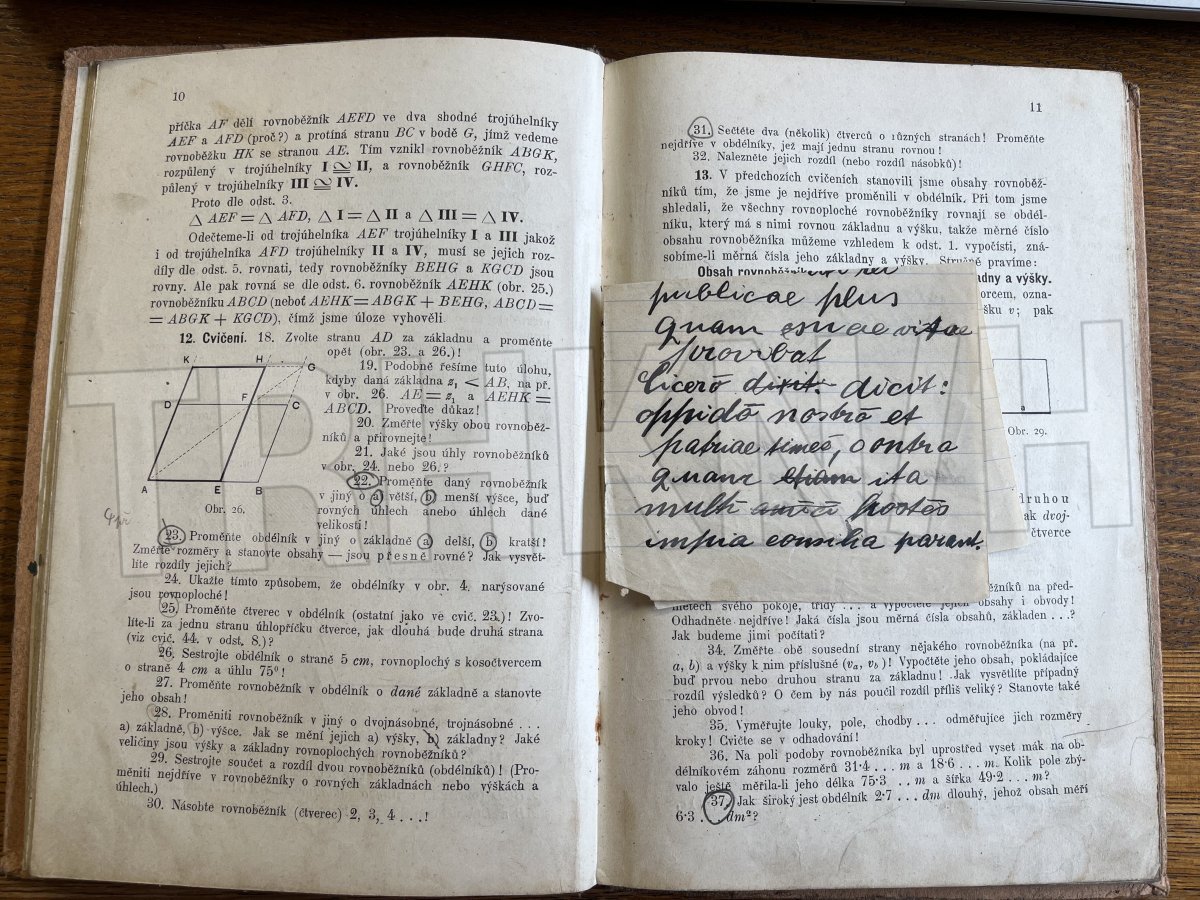 10
příčka AF dělí rovnoběžník AEFD ve dva shodné trojúhelníky
AEF a AFD (proč?) a protíná stranu BC v bodě G, jímž vedeme
rovnoběžku HK se stranou AE. Tím vznikl rovnoběžník ABGK,
rozpůlený v trojúhelníky I ≅ II, a rovnoběžník GHFC, roz-
půlený v trojúhelníky III ≅ IV.
Proto dle odst. 3.
△ AEF = △ AFD, △ I = △ II a △ III = △ IV.
Odečteme-li od trojúhelníka AEF trojúhelníky I a III jakož
i od trojúhelníka AFD trojúhelníky II a IV, musí se jejich roz-
díly dle odst. 5. rovnati, tedy rovnoběžníky BEHG a KGCD jsou
rovny. Ale pak rovná se dle odst. 6. rovnoběžník AEHK (obr. 25.)
rovnoběžníku ABCD (neboť AEHK = ABGK + BEHG, ABCD =
= ABGK + KGCD), čímž jsme úloze vyhověli.
12. Cvičení. 18. Zvolte stranu AD za základnu a proměňte
opět (obr. 23. a 26.)!
19. Podobně řešíme tuto úlohu,
kdyby daná základna z₁ < AB, na př.
v obr. 26. AE = z₁ a AEHK =
ABCD. Proveďte důkaz!
20. Změřte výšky obou rovnoběž-
níků a přirovnejte!
21. Jaké jsou úhly rovnoběžníků
v obr. 24. nebo 26.?
22. Proměňte daný rovnoběžník
v jiný o a) větší, b) menší výšce, buď
rovných úhlech anebo úhlech dané
velikosti!
K H G
D F C
A E B
Obr. 26.
23. Proměňte obdélník v jiný o základně a) delší, b) kratší!
Změřte rozměry a stanovte obsahy — jsou přesně rovné? Jak vysvět-
líte rozdíly jejich?
24. Ukažte tímto způsobem, že obdélníky v obr. 4. narýsované
jsou rovnoploché!
25. Proměňte čtverec v obdélník (ostatní jako ve cvič. 23.)! Zvo-
líte-li za jednu stranu úhlopříčku čtverce, jak dlouhá bude druhá strana
(viz cvič. 44. v odst. 8.)?
26. Sestrojte obdélník o straně 5 cm, rovnoplochý s kosočtvercem
o straně 4 cm a úhlu 75°!
27. Proměňte rovnoběžník v obdélník o dané základně a stanovte
jeho obsah!
28. Proměniti rovnoběžník v jiný o dvojnásobné, trojnásobné . . .
a) základně, b) výšce. Jak se mění jejich a) výšky, b) základny? Jaké
veličiny jsou výšky a základny rovnoplochých rovnoběžníků?
29. Sestrojte součet a rozdíl dvou rovnoběžníků (obdélníků)! (Pro-
měniti nejdříve v rovnoběžníky o rovných základnách nebo výškách a
úhlech.)
30. Násobte rovnoběžník (čtverec) 2, 3, 4 . . .!
11
31. Sečtěte dva (několik) čtverců o různých stranách! Proměňte
nejdříve v obdélníky, jež mají jednu stranu rovnou!
32. Nalezněte jejich rozdíl (nebo rozdíl násobků)!
13. V předchozích cvičeních stanovili jsme obsahy rovnoběž-
níků tím, že jsme je nejdříve proměnili v obdélník. Při tom jsme
shledali, že všechny rovnoploché rovnoběžníky rovnají se obdél-
níku, který má s nimi rovnou základnu a výšku, takže měrné číslo
obsahu rovnoběžníka můžeme vzhledem k odst. 1. vypočísti, zná-
sobíme-li měrná čísla jeho základny a výšky. Stručně pravíme:
Obsah
adny a výšky.
orcem, ozna-
šku v; pak
publicae plus
quam suae vitae
Cicero dixit. dicit:
oppidō nostrō et
patriae timeō, contra
quam etiam ita
multi amīcī hostēs
impia consilia parant.
a
Obr. 29.
druhou
ak dvoj-
čtverce
ěžníků na před-
mětech svého pokoje, třídy . . . a vypočtěte jejich obsahy i obvody!
Odhadněte nejdříve! Jaká čísla jsou měrná čísla obsahů, základen . . .?
Jak budeme jimi počítati?
34. Změřte obě sousední strany nějakého rovnoběžníka (na př.
a, b) a výšky k nim příslušné (vₐ, v_b)! Vypočtěte jeho obsah, pokládajíce
buď prvou nebo druhou stranu za základnu! Jak vysvětlíte případný
rozdíl výsledků? O čem by nás poučil rozdíl příliš veliký? Stanovte také
jeho obvod!
35. Vyměřujte louky, pole, chodby . . . odměřujíce jich rozměry
kroky! Cvičte se v odhadování!
36. Na poli podoby rovnoběžníka byl uprostřed vyset mák na ob-
délníkovém záhonu rozměrů 31·4 . . . m a 18·6 . . . m. Kolik pole zbý-
valo ještě měřila-li jeho délka 75·3 . . . m a šířka 49·2 . . . m?
37. Jak široký jest obdélník 2·7 . . . dm dlouhý, jehož obsah měří
6·3 . . . dm²?
TRHKNIH